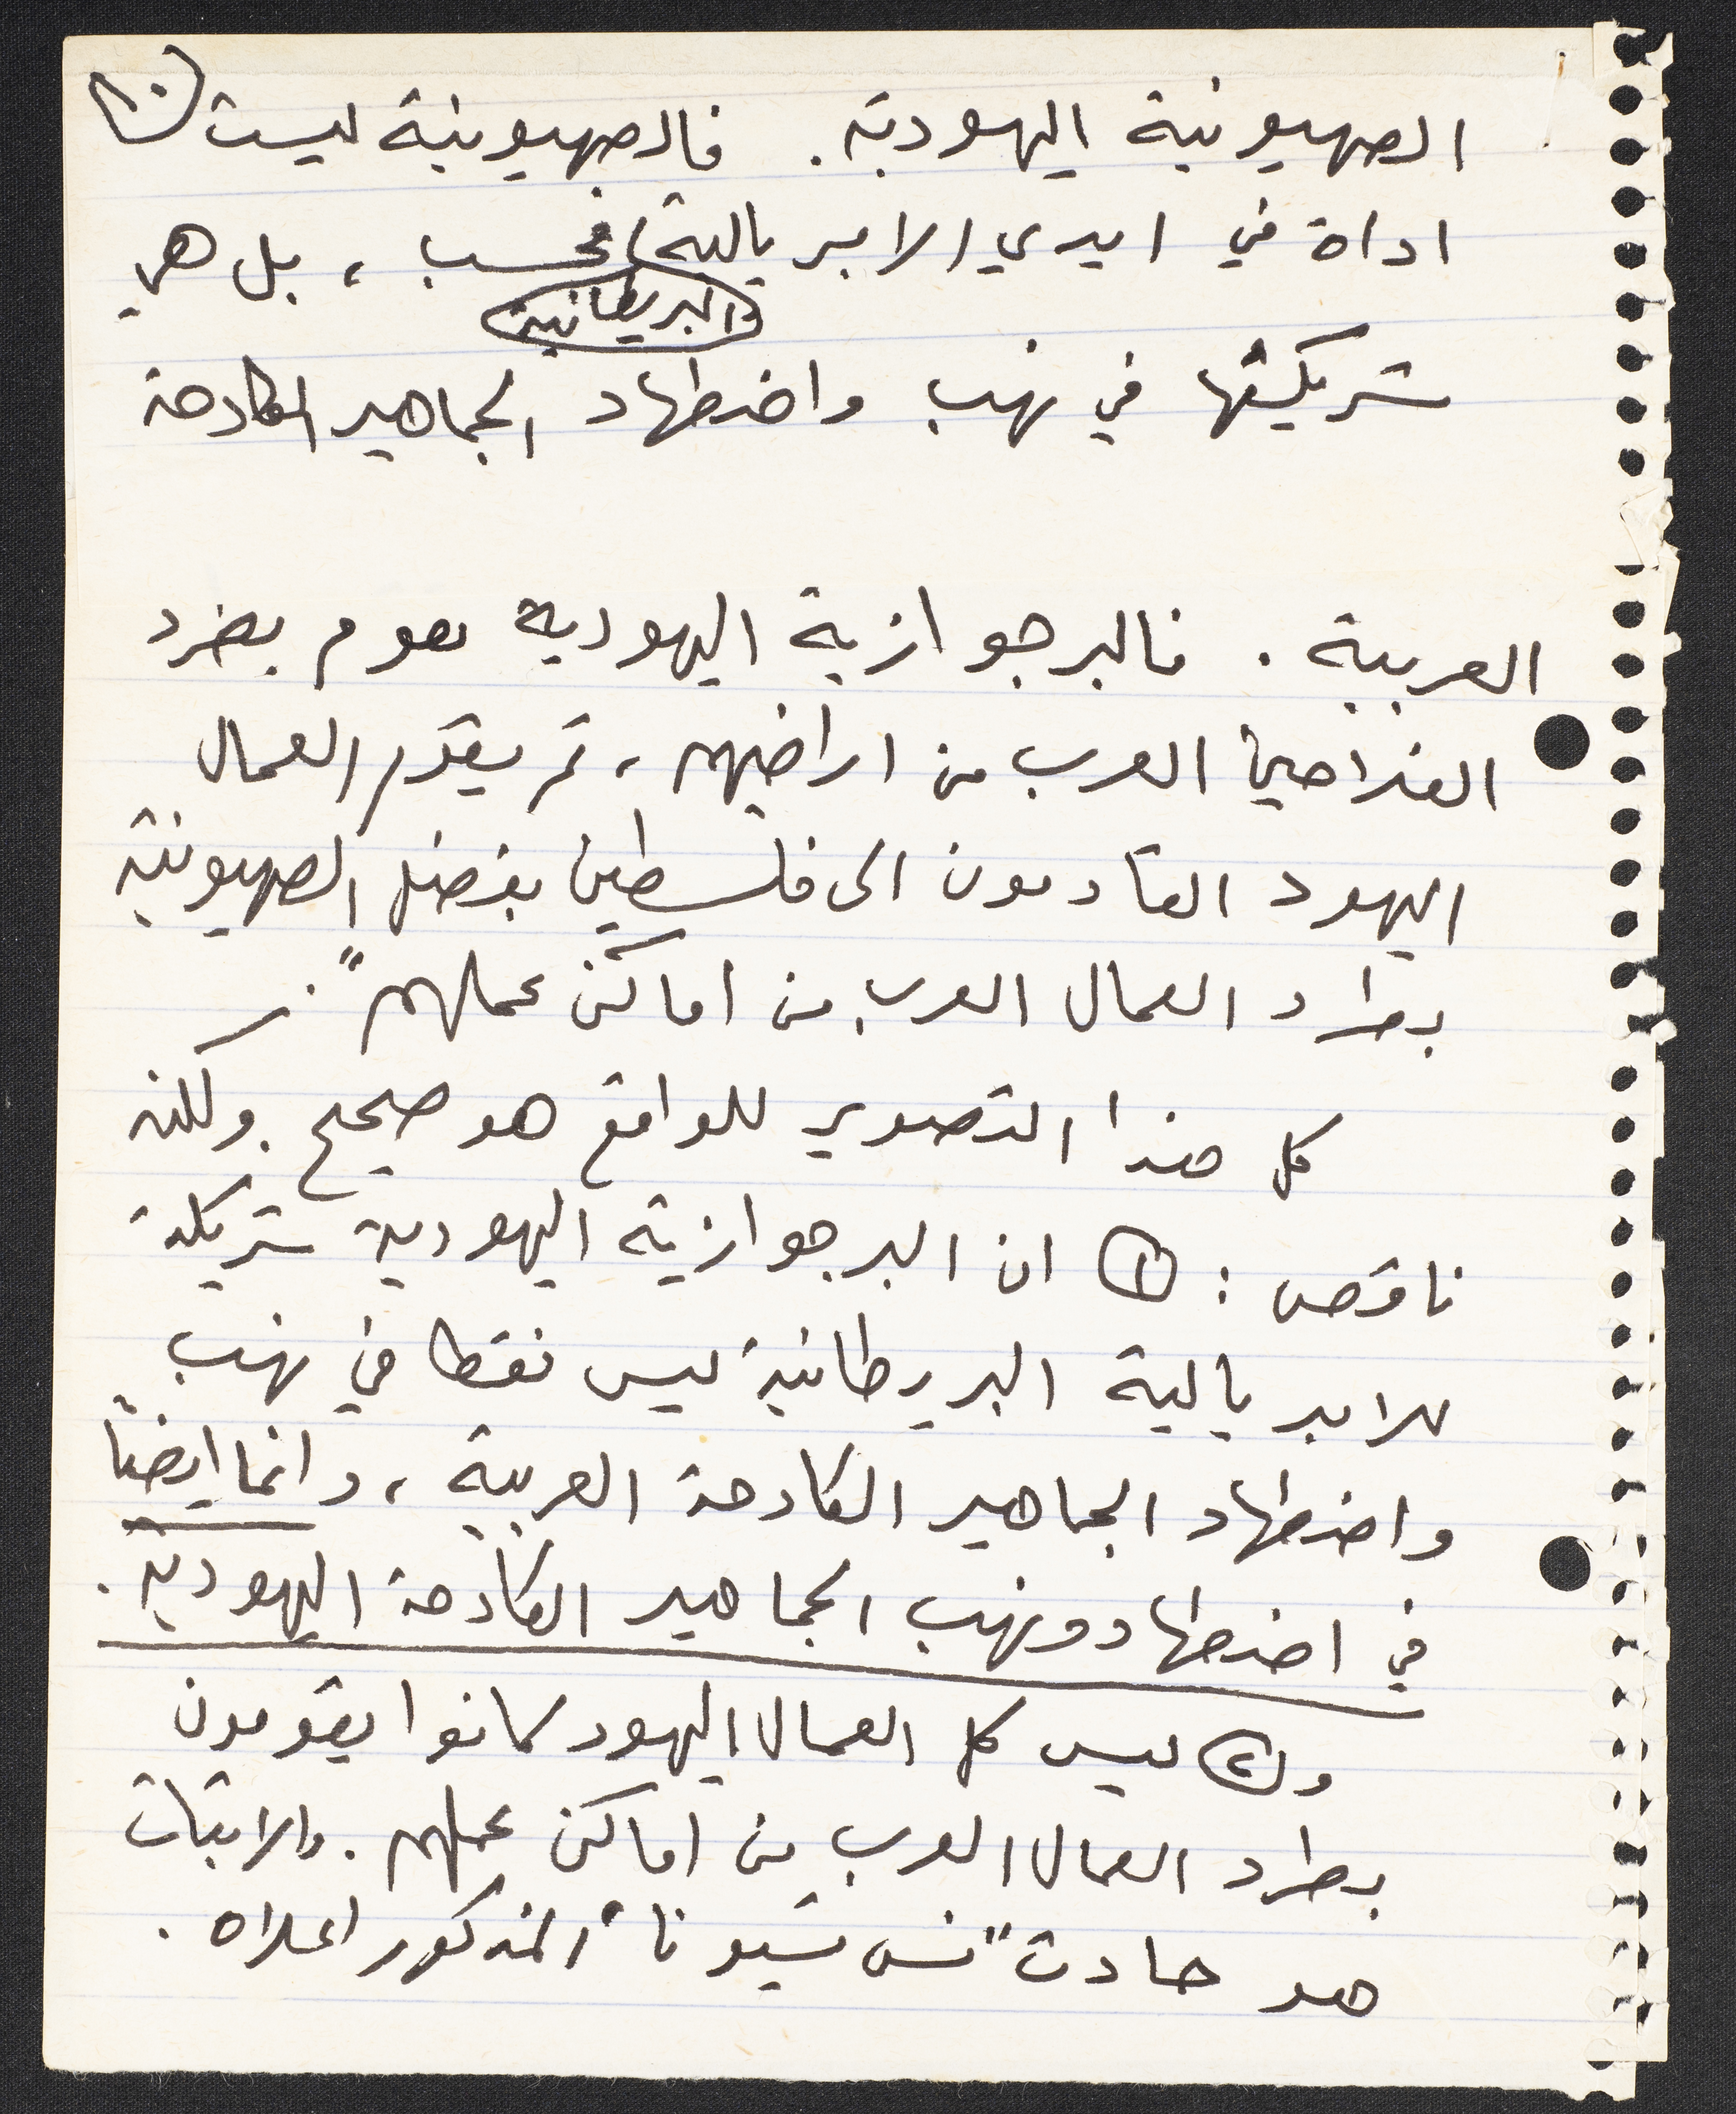 الصهيونية اليهودية. فالصهيونية ليست
اداة في ايدي الامبريالية فحسب، بل هي
البريطانية
شريكتها في نهب واضطهاد الجماهير الكادحة
العربية. فالبرجوازية اليهودية تقوم بطرد
الفلاحين العرب من اراضيهم، ثم يقوم العمال
اليهود القادمون الى فلسطين بفضل الصهيونية
بطرد العمال العرب من اماكن عملهم".
كل هذا التصوير للواقع هو صحيح. ولكنه
ناقص: ١ ان البرجوازية اليهودية شريكة
للامبريالية البريطانية ليس فقط في نهب
واضطهاد الجماهير الكادحة العربية، وانما ايضاً
في اضطهاد ونهب الجماهير الكادحة اليهودية.
و٢ ليس كل العمال اليهود كانوا يقومون
بطرد العمال العرب من اماكن عملهم. والاثبات
هو حادث "نس تسيونا" المذكور اعلاه.